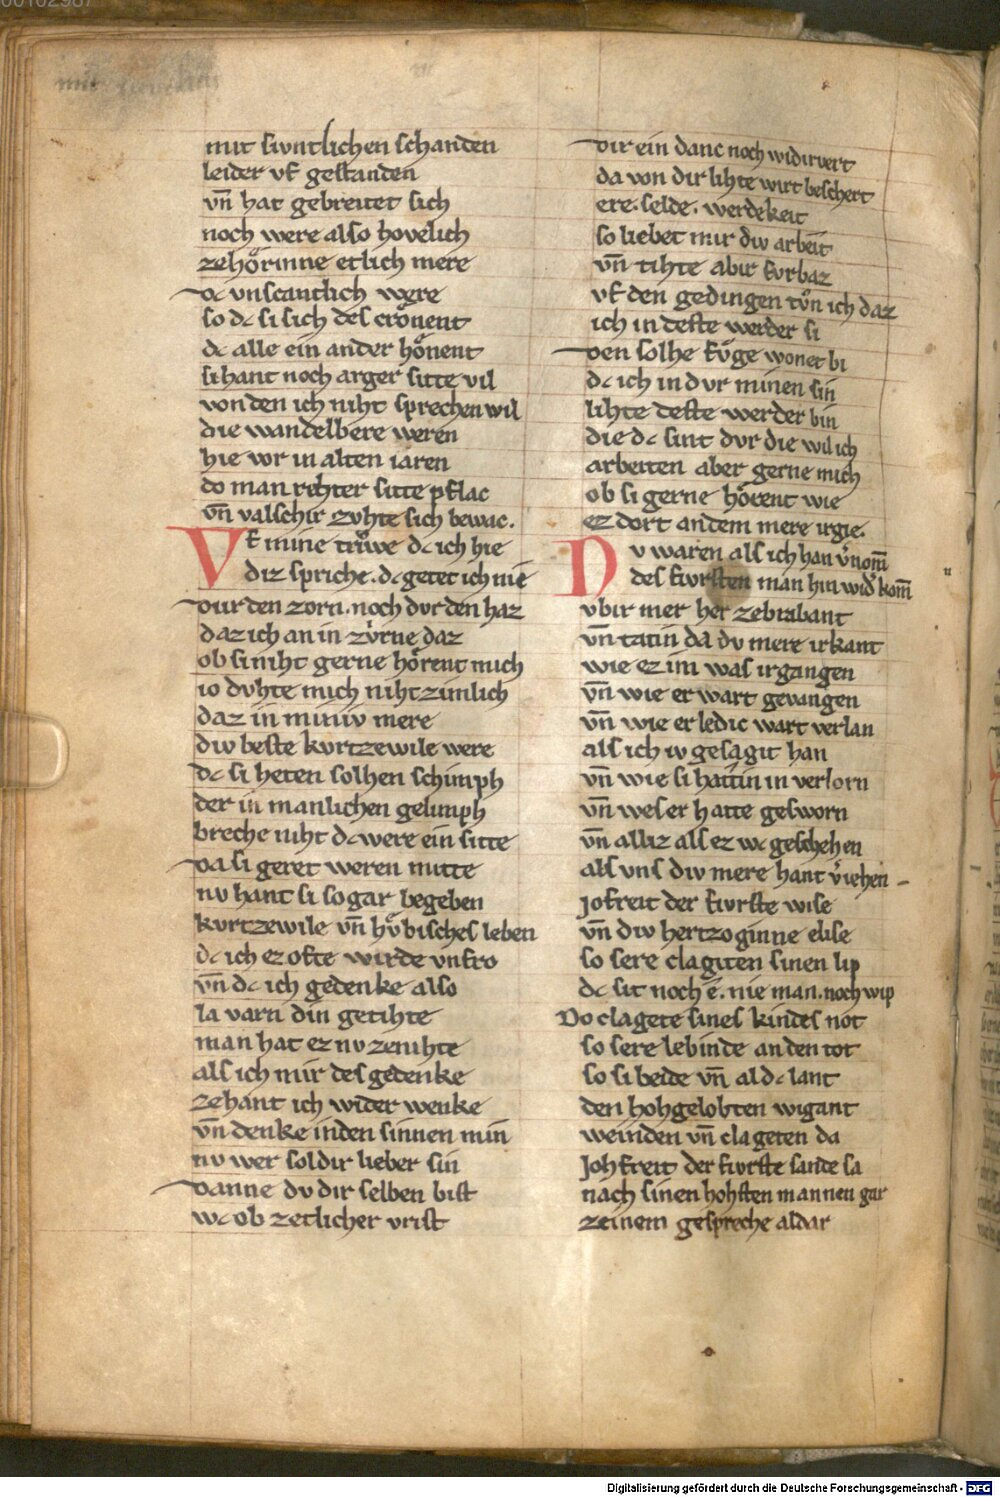 mit siuntlichen schanden
leider vf gestanden
vn̄ hat gebreitet sich
noch were also hovelich
zehoͤrinne etlich mere
dc vnscantlich were
so dc si sich des croͤnent
dc alle ein ander hoͤnent
si hant noch arger sitte vil
von den ich niht sprechen wil
die wandelbere weren
hie vor in alten iaren
do man rehter sitte pflac
vn̄ valschir zvhte sich bewac.
Vf mine trůwe dc ich hie
diz spriche. dc getet ich nie
dur den zorn. noch dvr den haz
daz ich an in zv̊rne daz
ob si niht gerne hoͤrent mich
io dvhte mich niht zimlich
daz in miniv mere
div beste kvrtzewile were
dc si heten solhen schimph
der in manlichen gelimph
breche niht dc were ein sitte
da si geret weren mitte
nv hant si so gar begeben
kvrtzewile vn̄ hv̊bisches leben
dc ich ez ofte wirde vnfro
vn̄ dc ich gedenke also
la varn din getihte
man hat ez nv zenihte
als ich mir des gedenke
zehant ich wider wenke
vn̄ denke inden sinnen min
nv wer soldir lieber sin
danne dv dir selben bist
wc ob zetlicher vrist
dir ein danc noch widirvert
da von dir lihte wirt beschert
ere. selde. werdekeit
so liebet mir div arbeit
vn̄ tihte abir fvrbaz
vf den gedingen tv̊n ich daz
ich in deste werder si
den solhe fv̊ge wonet bi
dc ich in dvr minen sin
lihte deste werder bin
die dc sint dvr die wil ich
arbeiten aber gerne mich
ob si gerne hoͤrent wie
ez dort an dem mere irgie.
Nv waren als ich han v̓nom̄
des fivrsten man hin wid̓ kom̄
vbir mer her zebrabant
vn̄ tatin da dv mere irkant
wie ez im was irgangen
vn̄ wie er wart gevangen
vn̄ wie er ledic wart verlan
als ich iv gesagit han
vn̄ wie si hattin in verlorn
vn̄ wes er hatte gesworn
vn̄ alliz als ez wc geschehen
als vns div mere hant v̓iehen
Jofreit der fivrste wise
vn̄ div hertzoginne elise
so sere clagiten sinen lip
dc sit noch e. nie man. noch wip
Do clagete sines kindes not
so sere lebinde an den tot
so si beide vn̄ al dc lant
den hohgelobten wigant
weinden vn̄ clageten da
Johfreit der fivrste sande sa
nach sinen hohsten mannen gar
zeinem gespreche aldar
Digitalisierung gefördert durch die Deutsche Forschungsgemeinschaft - DFG